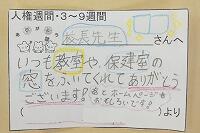 人権週間・3～9週間
ありがとう
校長先生 さんへ
いつも教室や、保健室の
窓をふいてくれてありがとう
ございます！ホームページも
おもしろいです！
( )より